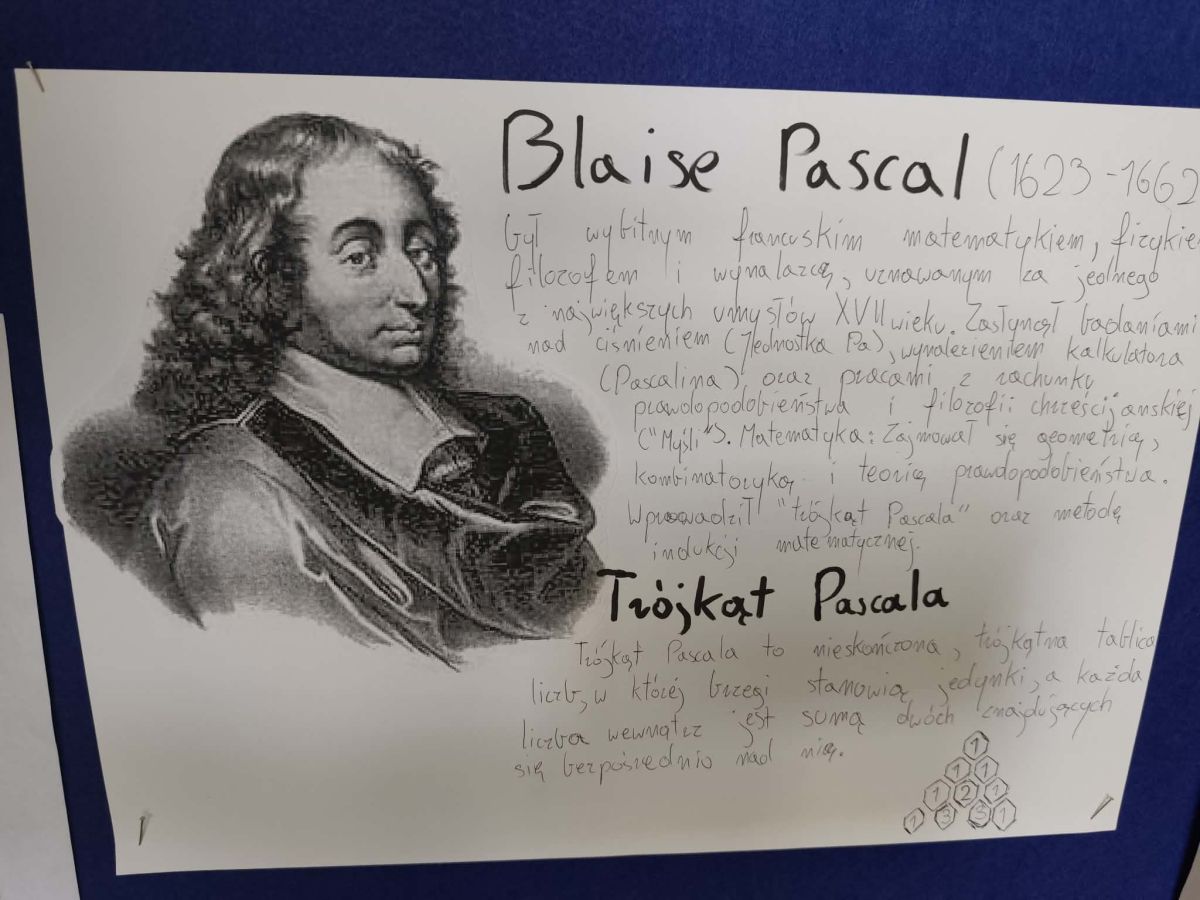 Blaise Pascal (1623-1662
był wybitnym francuskim matematykiem, fizykiem
filozofem i wynalazcą, uznawanym za jednego
z największych umysłów XVII wieku. Zasłynął badaniami
nad ciśnieniem (Jednostka Pa), wynalezieniem kalkulatora
(Pascalina) oraz pracami z rachunku
prawdopodobieństwa i filozofii chrześcijańskiej
("Myśli"). Matematyka: Zajmował się geometrią,
kombinatoryką i teorią prawdopodobieństwa.
Wprowadził "trójkąt Pascala" oraz metodę
indukcji matematycznej.
Trójkąt Pascala
Trójkąt Pascala to nieskończona, trójkątna tablica
liczb, w której brzegi stanowią jedynki, a każda
liczba wewnątrz jest sumą dwóch znajdujących
się bezpośrednio nad nią.
1
1 1
1 2 1
1 3 3 1